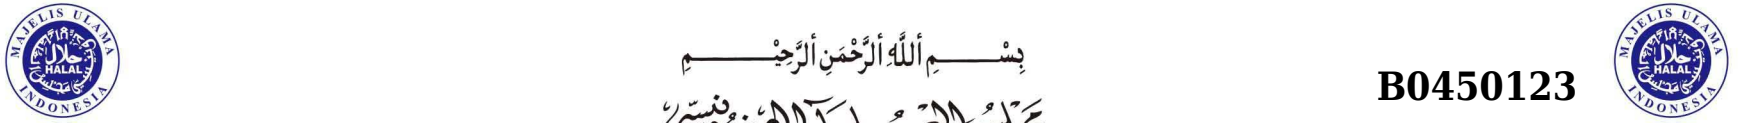 MAJELIS ULAMA INDONESIA
حلال
HALAL
بِسْــــمِ أللَّهِ ألرَّحْمَنِ ألرَّحِيْــــمِ
B0450123
MAJELIS ULAMA INDONESIA
حلال
HALAL